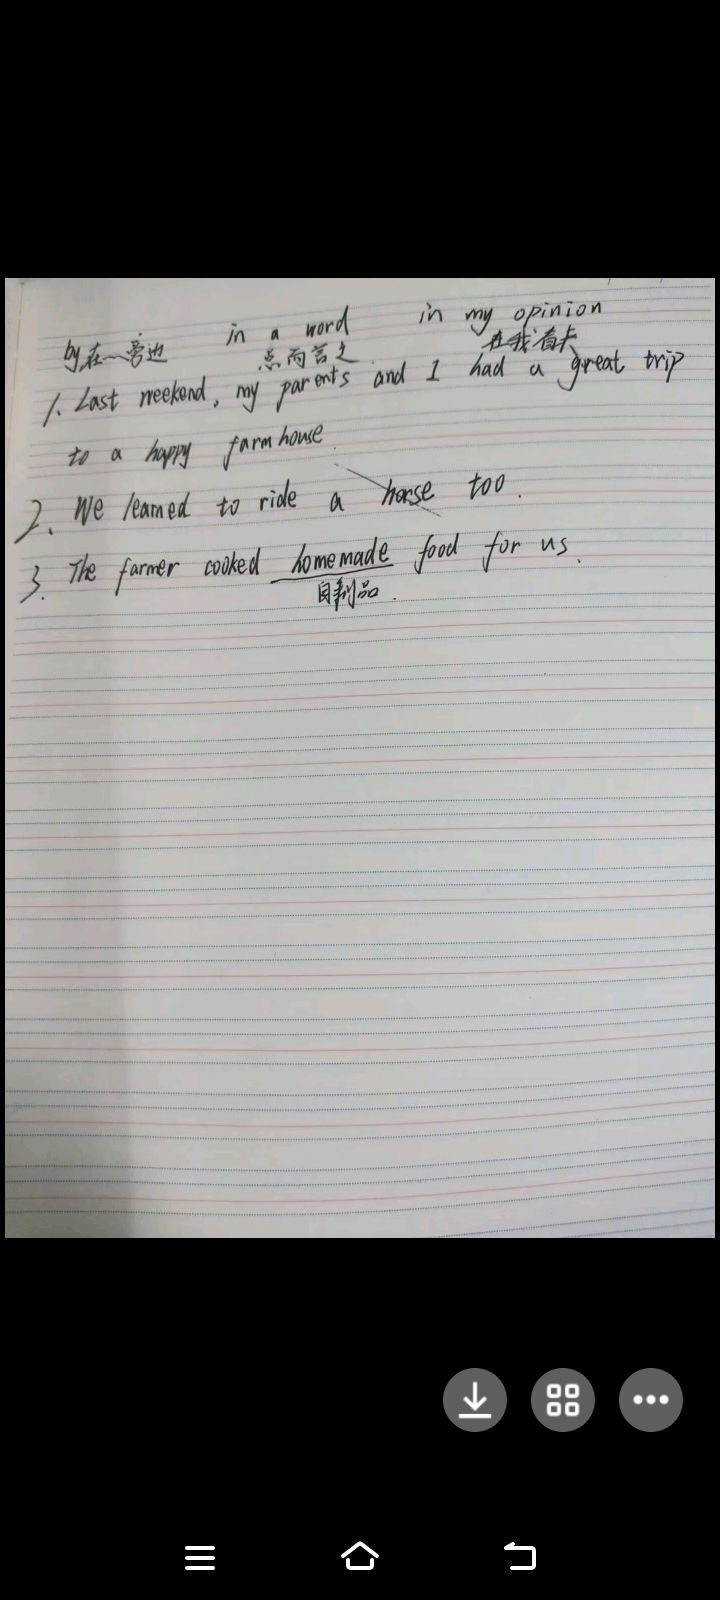 by 在…旁边 in a word in my opinion
总而言之 在我看来
1. Last weekend, my parents and I had a great trip
to a happy farmhouse.
2. We learned to ride a horse too.
3. The farmer cooked homemade food for us.
自制品.